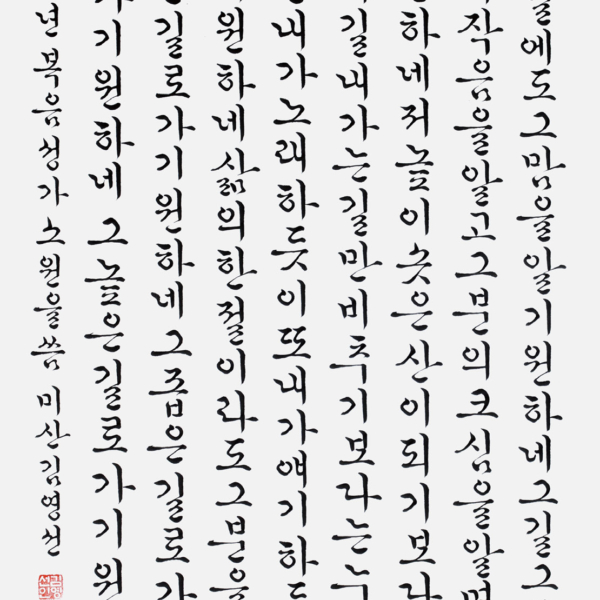 에도그맘을알기원하네그길그
작음을알고그분의크심을알며
하네저높이솟은산이되기보다
길내가는길만비추기보다는누
내가노래하듯이또내가얘기하듯
원하네삶의한절이라도그분을
길로가기원하네그좁은길로가
가기원하네그높은길로가기원
년복음성가소원을씀미산김영선